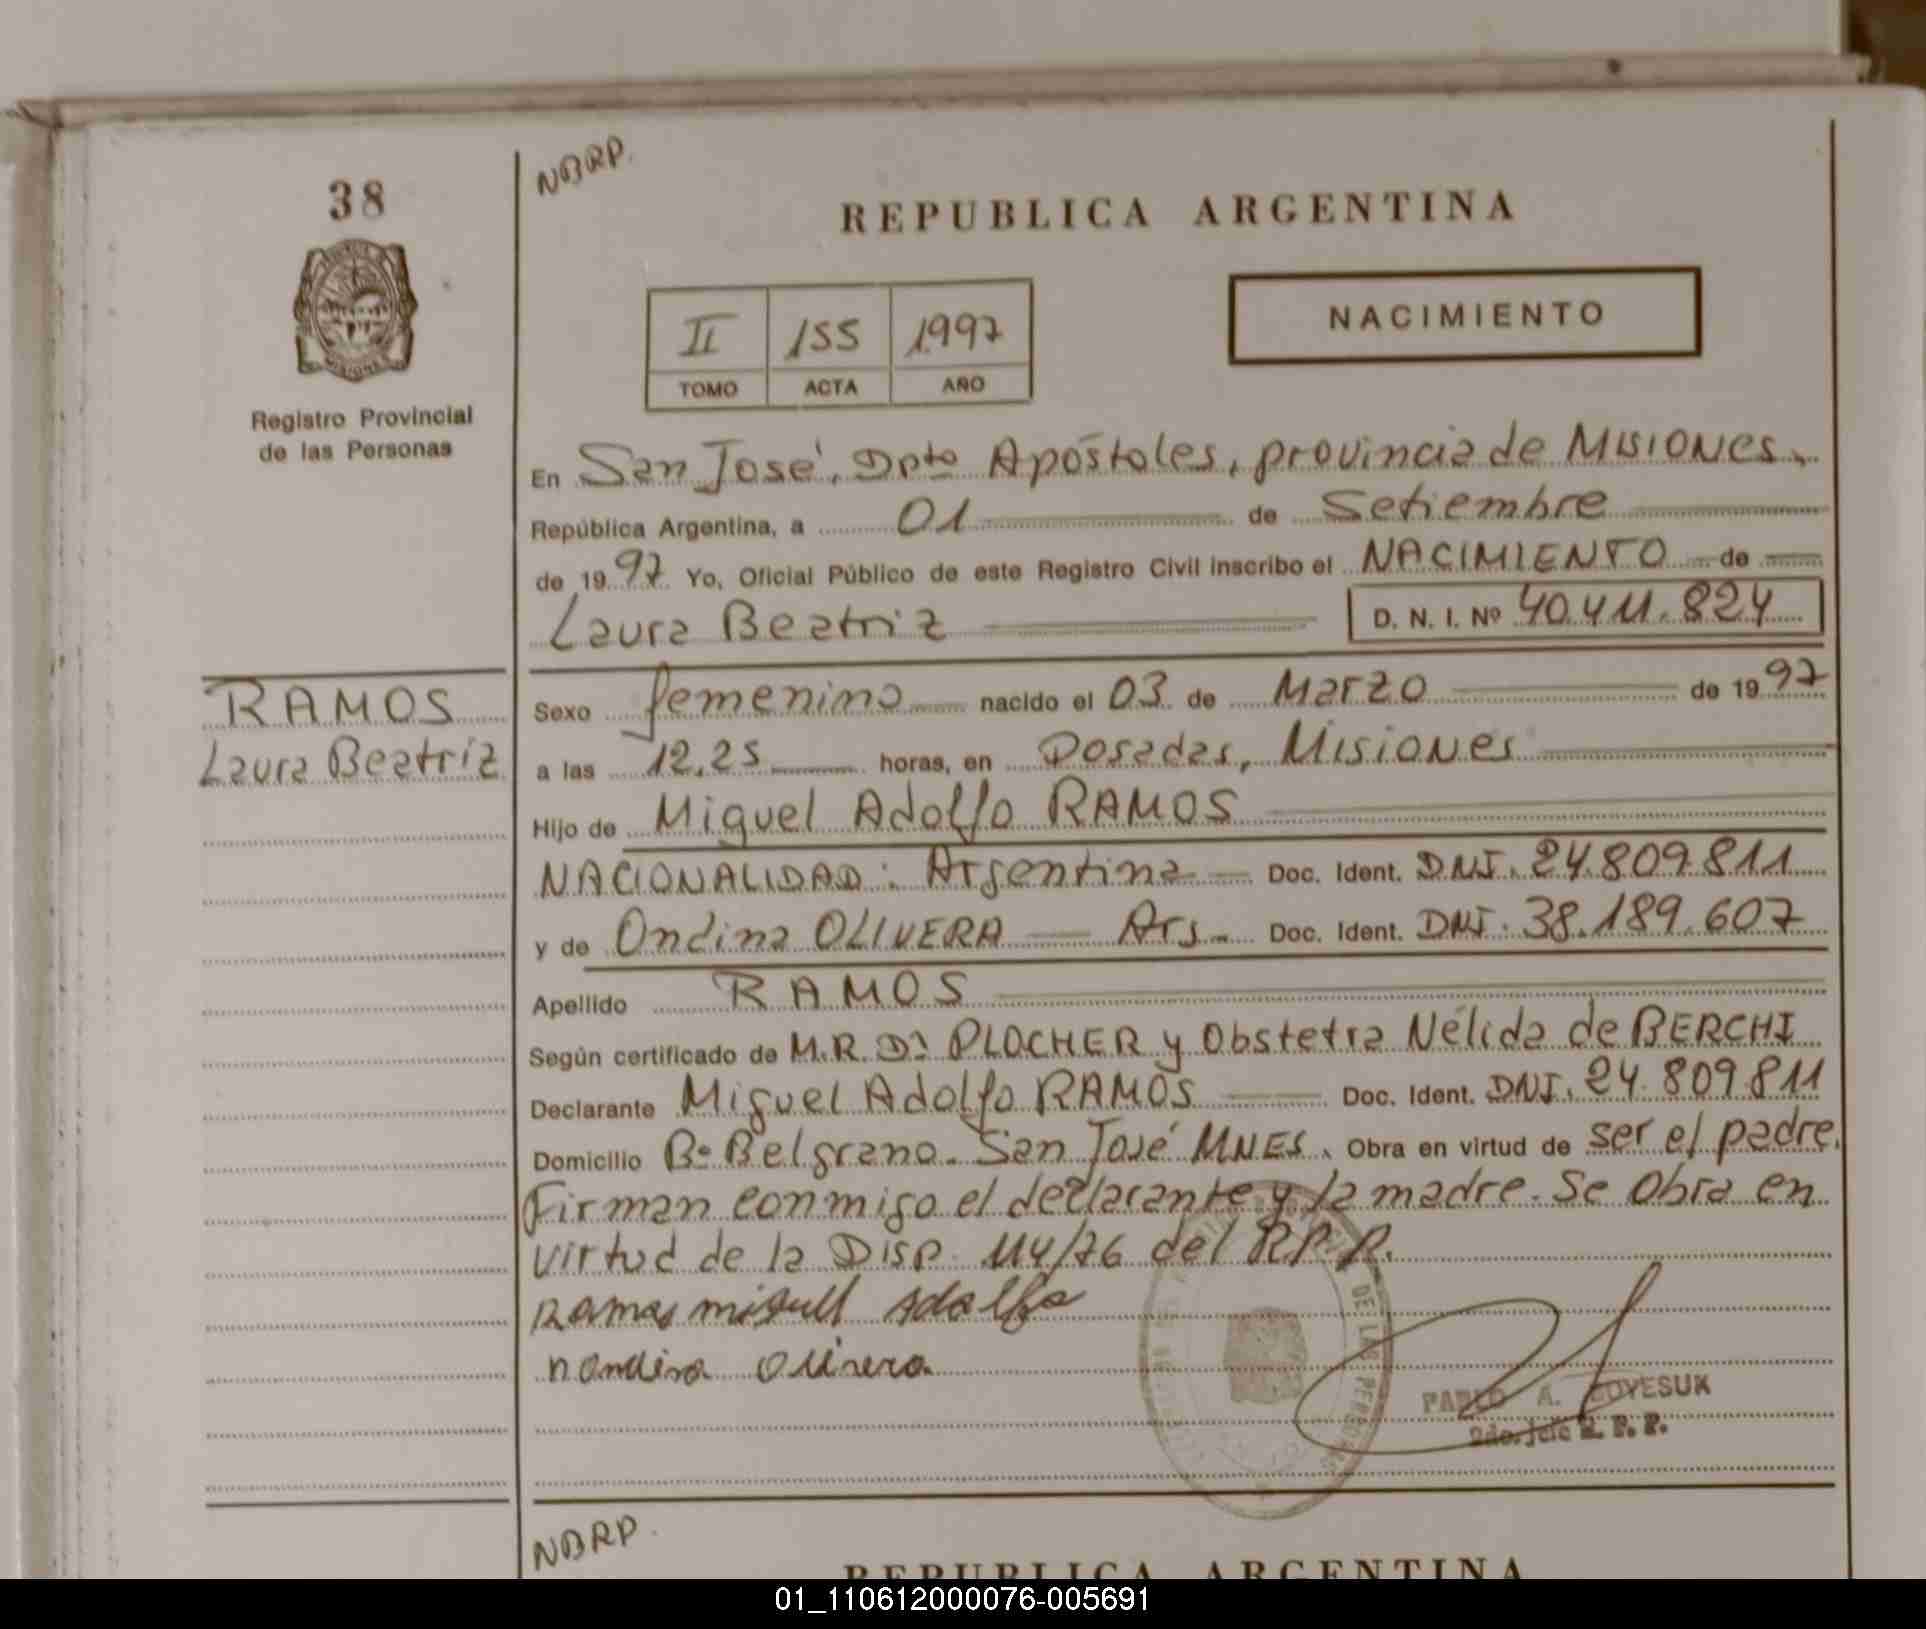 NBRP.
38
REPUBLICA ARGENTINA
NACIMIENTO
II 155 1997
TOMO ACTA AÑO
Registro Provincial
de las Personas
En San José, Dpto Apóstoles, provincia de MISIONES.
República Argentina, a 01 de Setiembre
de 1997 Yo, Oficial Público de este Registro Civil inscribo el NACIMIENTO de
Laura Beatriz D. N. I. Nº 40.411.824
RAMOS
Laura Beatriz
Sexo femenino nacido el 03 de Marzo de 1997
a las 12,25 horas, en Posadas, Misiones
Hijo de Miguel Adolfo RAMOS
NACIONALIDAD: Argentina Doc. Ident. DNI. 24.809.811
y de Ondina OLIVERA Arg. Doc. Ident. DNI. 38.189.607
Apellido RAMOS
Según certificado de M.R. Dr PLOCHER y Obstetra Nélida de BERCHI
Declarante Miguel Adolfo RAMOS Doc. Ident. DNI. 24.809.811
Domicilio Bº Belgrano. San José MNES. Obra en virtud de ser el padre.
Firman conmigo el declarante y la madre. Se obra en
virtud de la Disp. 114/76 del R.P.P.
Ramos miguell Adolfo
nondina Olivera
DE LAS PERSONAS
PABLO A.
2do. Jefe R. P. P.
NBRP.
REPUBLICA ARGENTINA
01_110612000076-005691